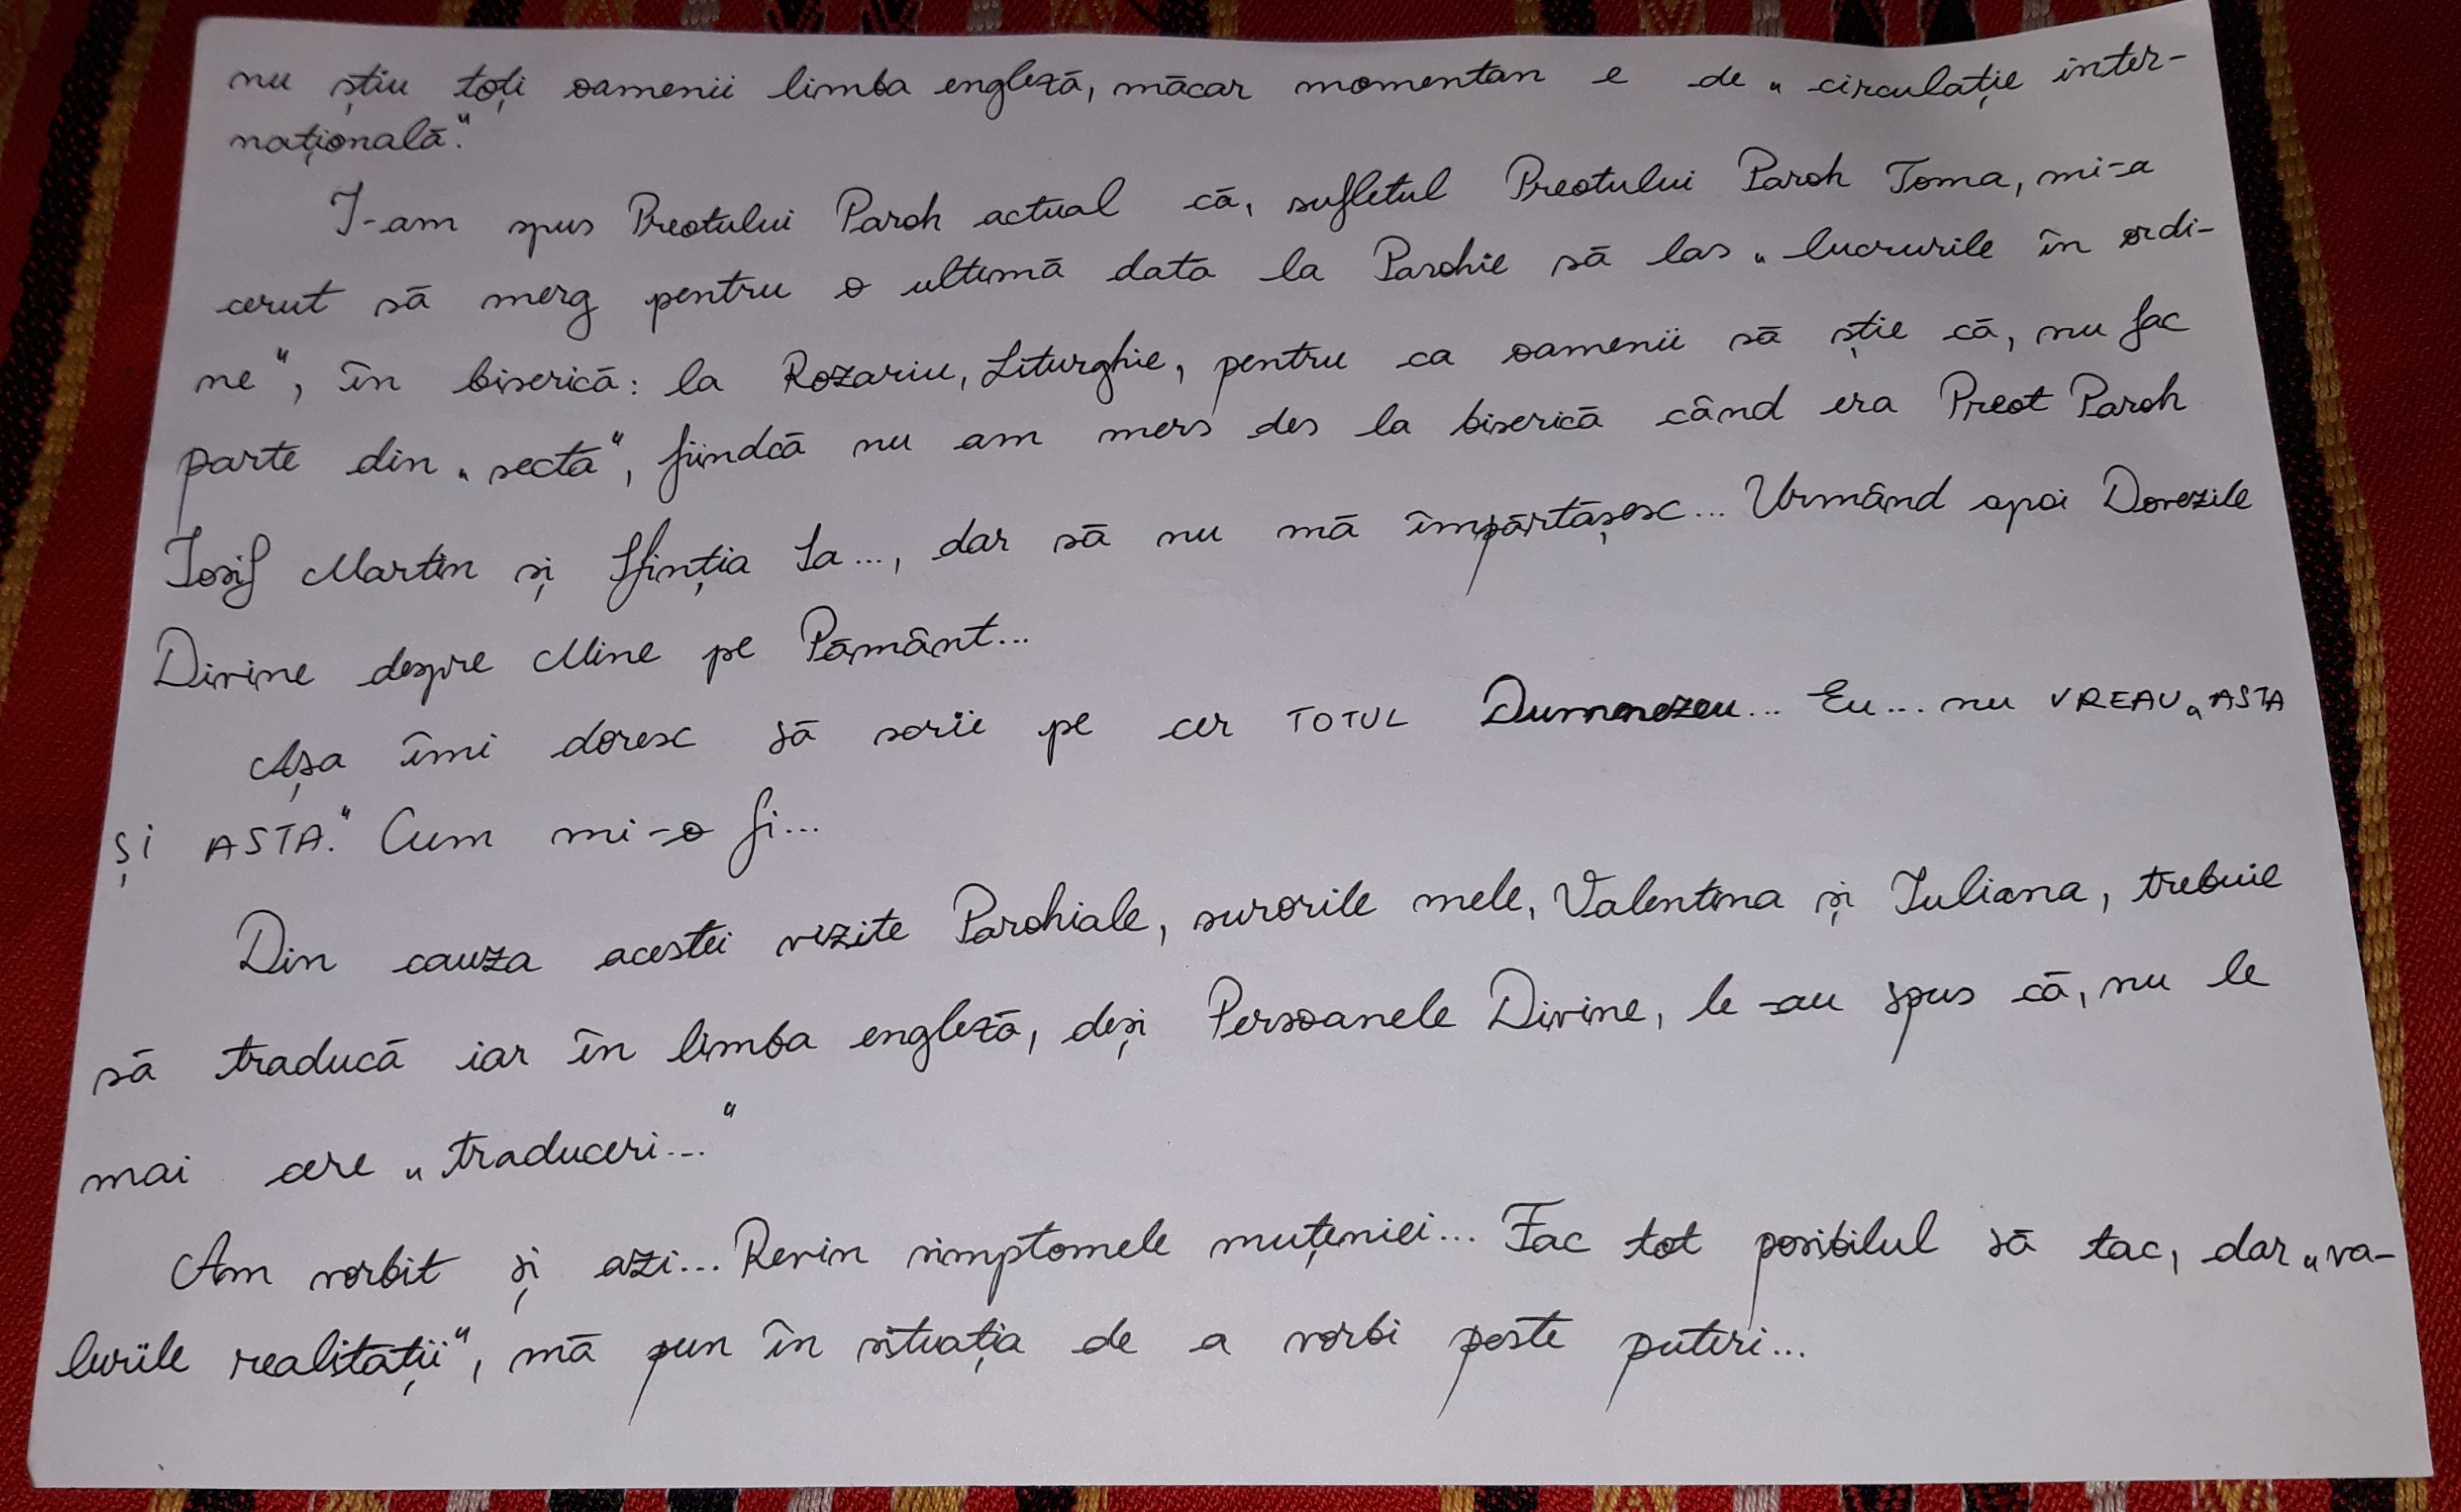 nu știu toți oamenii limba engleză, măcar momentan e de „circulație inter-
națională."
I-am spus Preotului Paroh actual că, sufletul Preotului Paroh Toma, mi-a
cerut să merg pentru o ultimă dată la Parohie să las „lucrurile în ordi-
ne", în biserică: la Rozariu, Liturghie, pentru ca oamenii să știe că, nu fac
parte din „sectă", fiindcă nu am mers des la biserică când era Preot Paroh
Iosif Martin și Sfinția Sa..., dar să nu mă împărtășesc... Urmând apoi Dovezile
Divine despre Mine pe Pământ...
Așa îmi doresc să scrie pe cer TOTUL Dumnezeu... Eu... nu VREAU „ASTA
ȘI ASTA." Cum mi-o fi...
Din cauza acestei vizite Parohiale, surorile mele, Valentina și Iuliana, trebuie
să traducă iar în limba engleză, deși Persoanele Divine, le-au spus că, nu le
mai cere „traduceri..."
Am vorbit și azi... Revin simptomele muțeniei... Fac tot posibilul să tac, dar „va-
lurile realității", mă pun în situația de a vorbi peste puteri...